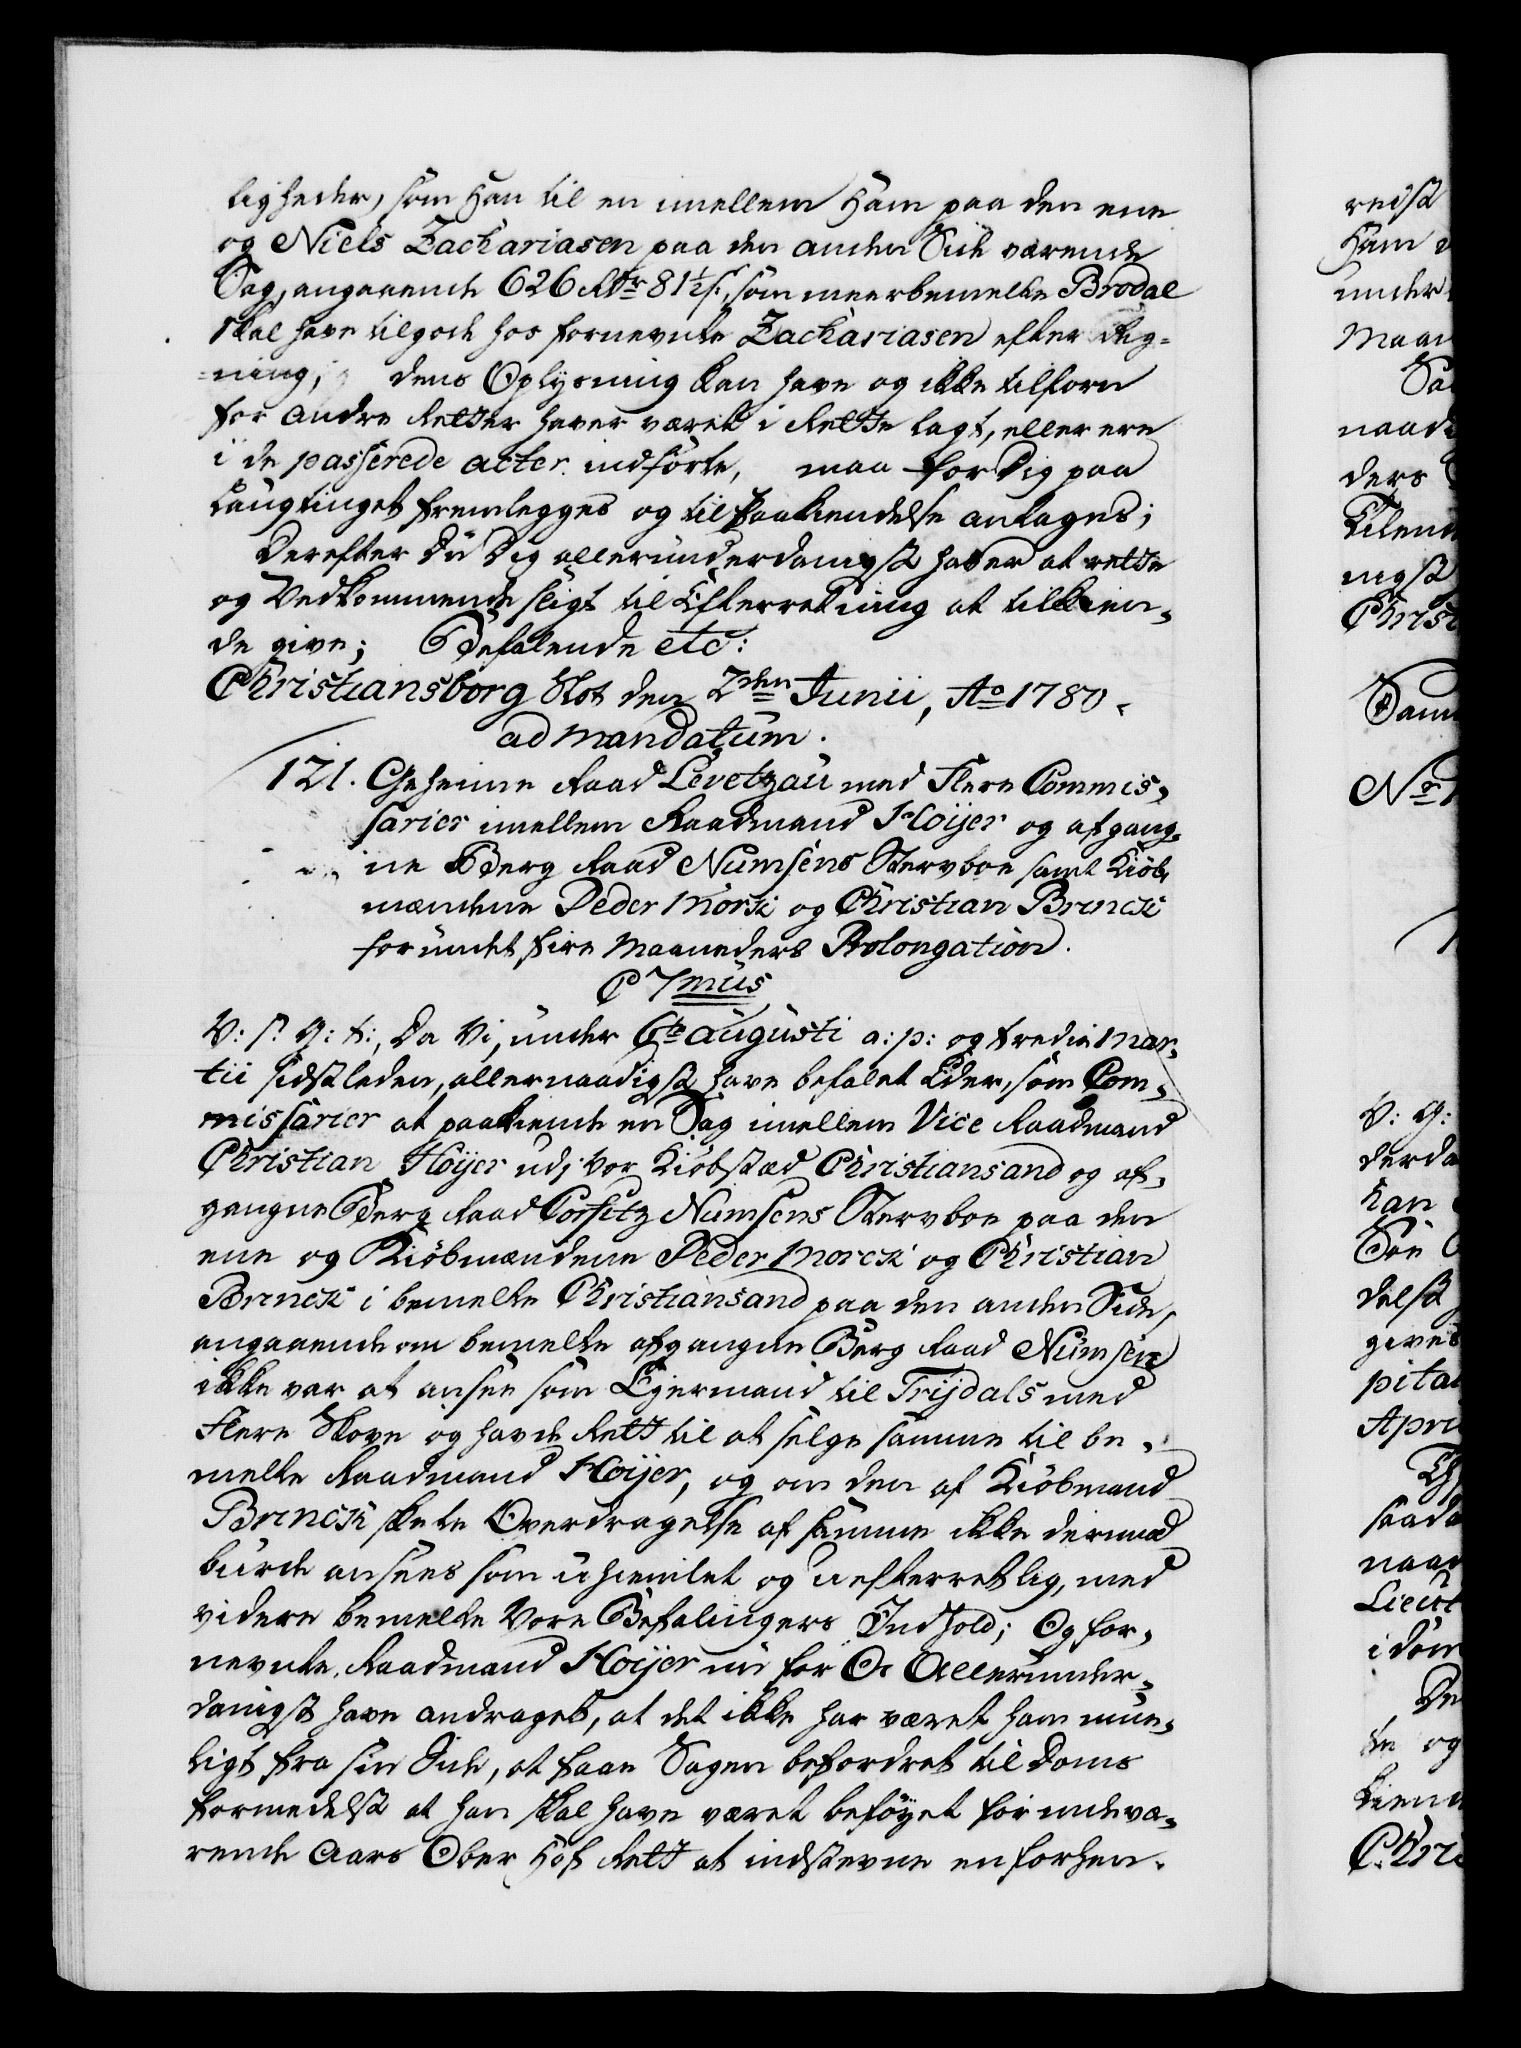 ligheder, som Han til en imellem Ham paa den ene
og Niels Zachariasen paa den anden Side værende
Sag, angaaende 626 Rdr 81½ s., som meerbemelte Brodal
skal have tilgode hos fornevnte Zachariasen efter Reg-
-ning, dens Oplysning kan have og ikke tilforn
for andre Retter haver været i Rette lagt, eller ere
i de passerede acter indförte, maa for Dig paa
Laugtinget fremlegges og til Paakiendelse antages;
Derefter Du Dig allerunderdanigst haver at rette
og Vedkommende sligt til Efterretning at tilkien-
de give; Befalende etc:
Christiansborg Slot den 2den Junii, Ao 1780.
ad mandatum.
121. Geheime Raad Levetzau med Flere Commis-
sarier imellem Raadmand Höijer og afgang-
ne Berg Raad Numsens Stervboe samt Kiöb-
mændene Peder Mörck og Christian Brinck
forundt fire Maaneders Prolongation.
C 7mus
V: s: G: t:, Da Vi, under 6te Augusti a: p: og tredie Mar-
tii sidstleden, allernaadigst have befalet Eder, som Com-
missarier at paakiende en Sag imellem Vice Raadmand
Christian Höijer udi Vor Kiöbstæd Christiansand og af-
gangne Berg Raad Numsens Stervboe paa den
ene og Kiöbmændene Peder Morck og Christian
Brinck i bemelte Christiansand paa den anden Side,
angaaende om bemelte afgangne Berg Raad Numsen
ikke var at ansee som Ejermand til Trijdals med
Flere Skove og havde Rett til at selge samme til be-
melte Raadmand Höijer, og om den af Kiöbmand
Brinck skete Overdragelse af samme ikke dermed
burde ansees som uhiemlet og uefterretlig, med
videre bemelte Vore Befalingers Indhold; Og for-
nevnte Raadmand Höijer nu for Os Allerunder-
danigst have andraget, at det ikke har været ham mue-
ligt fra sin Side, at faae Sagen befordret til Doms
formedelst at han skal have været beföyet for indevæ-
rende Aars Ober Hof Rett at indstevne en forhen-